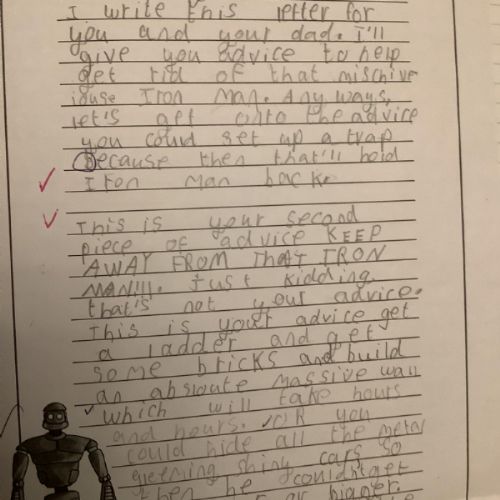 I write this letter for
you and your dad. I'll
give you advice to help
get rid of that mischive
iouse Iron Man. Any ways,
let's get onto the advice
you could set up a trap
Because then that'll hold
Iron Man back.
This is your second
piece of advice KEEP
AWAY FROM THAT IRON
MAN!!!. Just kidding
that's not your advice.
This is your advice get
a ladder and get
some bricks and build
an absloute massive wall
which will take hours
and hours. OR you
could hide all the metal
greeming shiny cars so
then he couldn't get
bigger.